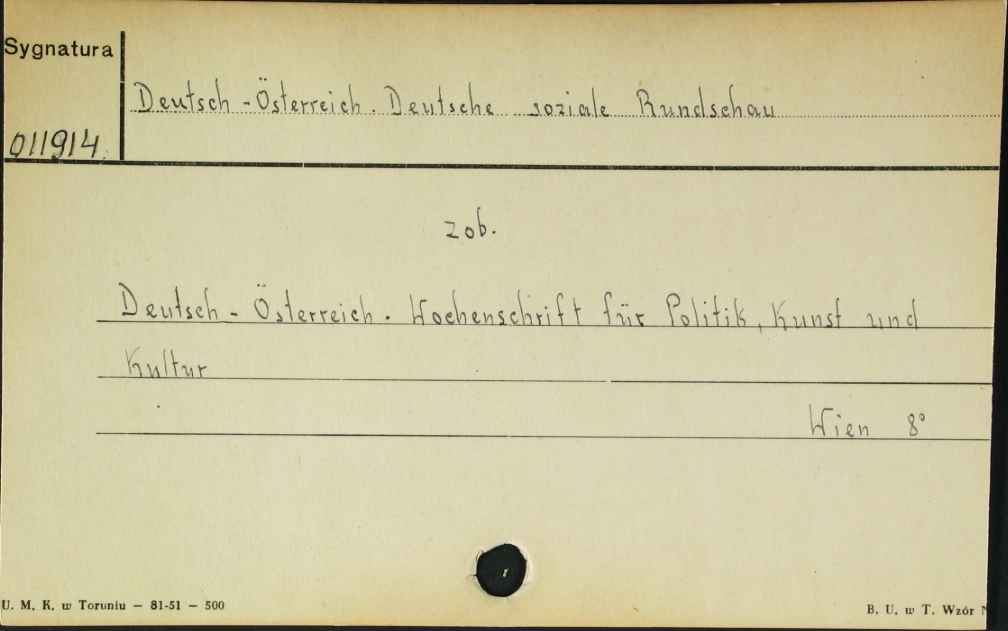 Sygnatura
Deutsch-Österreich. Deutsche soziale Rundschau
011914
zob.
Deutsch-Österreich. Wochenschrift für Politik, Kunst und
Kultur
Wien 8°
U. M. K. w Toruniu — 81-51 — 500
B. U. w T. Wzór